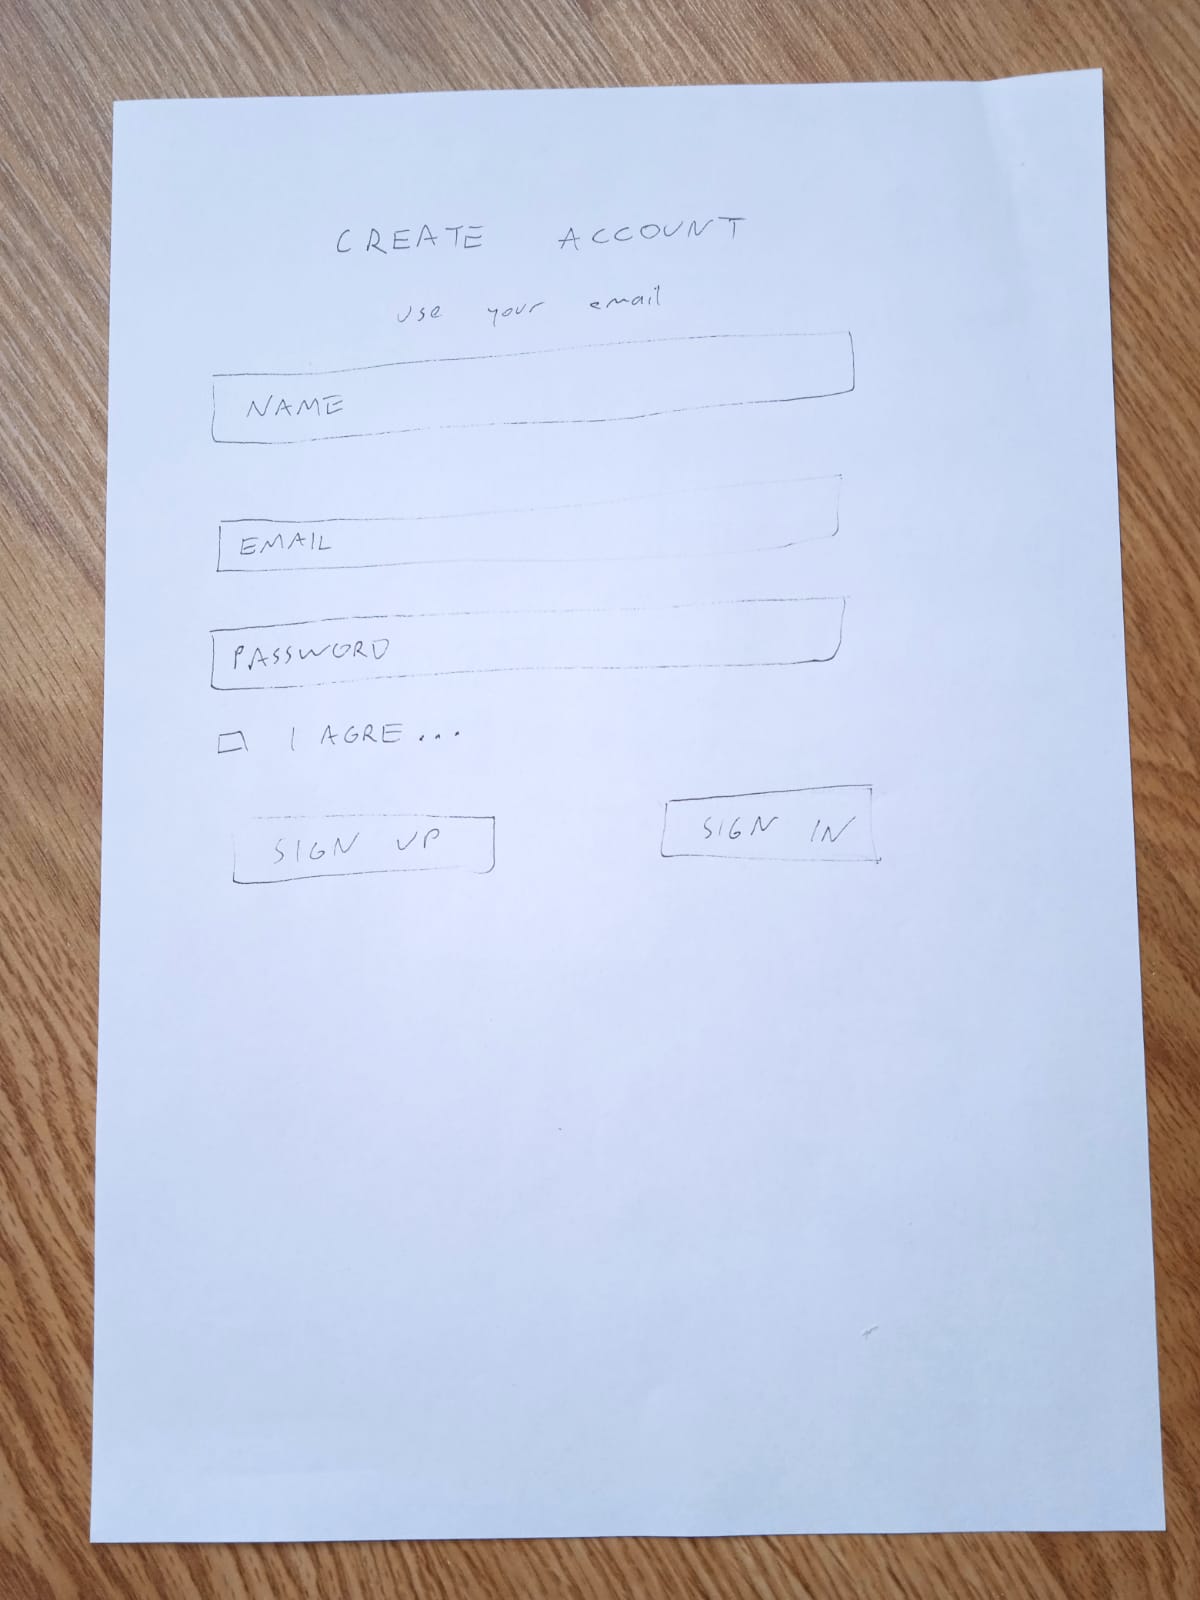 CREATE ACCOUNT
use your email
NAME
EMAIL
PASSWORD
I AGRE...
SIGN UP SIGN IN